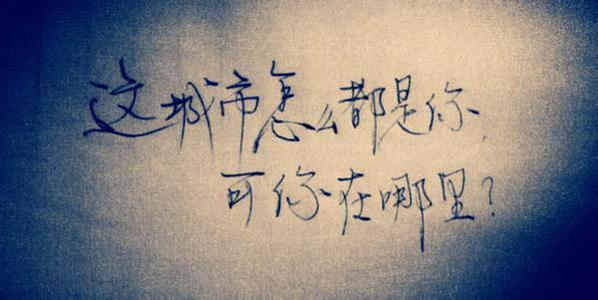 这城市怎么都是你
可你在哪里?